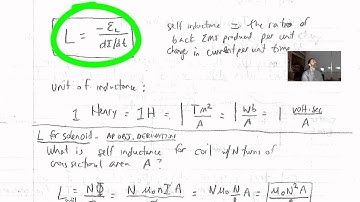 L = -ε_L / dI/dt
self inductance = the ratio of
back EMF produced per unit
change in current per unit time.
Unit of inductance:
1 Henry = 1H = 1 Tm²/A = 1 Wb/A = 1 volt·sec/A
L for solenoid - AP OBJ. DERIVATION
What is self inductance for coil w/ N turns of
cross sectional area A?
L = NΦ/I = N μ₀ n I A / I = N μ₀ N/l A = μ₀N²A/l